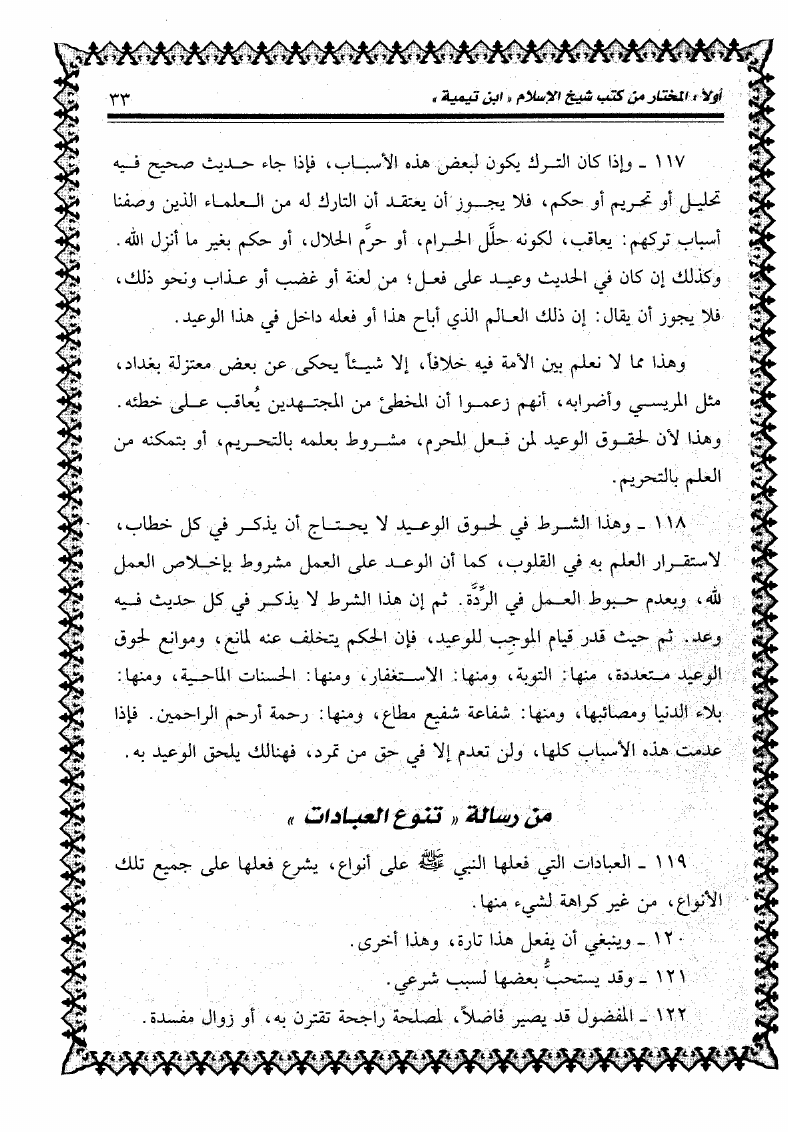 أولاً : المختار من كتب شيخ الإسلام « ابن تيمية » ٣٣
١١٧ ـ وإذا كان الترك يكون لبعض هذه الأسباب، فإذا جاء حديث صحيح فيه
تحليل أو تحريم أو حكم، فلا يجوز أن يعتقد أن التارك له من العلماء الذين وصفنا
أسباب تركهم: يعاقب، لكونه حلَّل الحرام، أو حرَّم الحلال، أو حكم بغير ما أنزل الله.
وكذلك إن كان في الحديث وعيد على فعل؛ من لعنة أو غضب أو عذاب ونحو ذلك،
فلا يجوز أن يقال: إن ذلك العالم الذي أباح هذا أو فعله داخل في هذا الوعيد.
وهذا مما لا نعلم بين الأمة فيه خلافاً، إلا شيئاً يحكى عن بعض معتزلة بغداد،
مثل المريسي وأضرابه، أنهم زعموا أن المخطئ من المجتهدين يُعاقب على خطئه.
وهذا لأن لحقوق الوعيد لمن فعل المحرم، مشروط بعلمه بالتحريم، أو بتمكنه من
العلم بالتحريم.
١١٨ ـ وهذا الشرط في لحوق الوعيد لا يحتاج أن يذكر في كل خطاب،
لاستقرار العلم به في القلوب، كما أن الوعد على العمل مشروط بإخلاص العمل
لله، وبعدم حبوط العمل في الرِّدَّة. ثم إن هذا الشرط لا يذكر في كل حديث فيه
وعد. ثم حيث قدر قيام الموجِب للوعيد، فإن الحكم يتخلف عنه لمانع، وموانع لحوق
الوعيد متعددة، منها: التوبة، ومنها: الاستغفار، ومنها: الحسنات الماحية، ومنها:
بلاء الدنيا ومصائبها، ومنها: شفاعة شفيع مطاع، ومنها: رحمة أرحم الراحمين. فإذا
عدمت هذه الأسباب كلها، ولن تعدم إلا في حق من تمرد، فهنالك يلحق الوعيد به.
من رسالة « تنوع العبادات »
١١٩ ـ العبادات التي فعلها النبي ﷺ على أنواع، يشرع فعلها على جميع تلك
الأنواع، من غير كراهة لشيء منها.
١٢٠ ـ وينبغي أن يفعل هذا تارة، وهذا أخرى.
١٢١ ـ وقد يستحبُّ بعضها لسبب شرعي.
١٢٢ ـ المفضول قد يصير فاضلاً، لمصلحة راجحة تقترن به، أو زوال مفسدة.